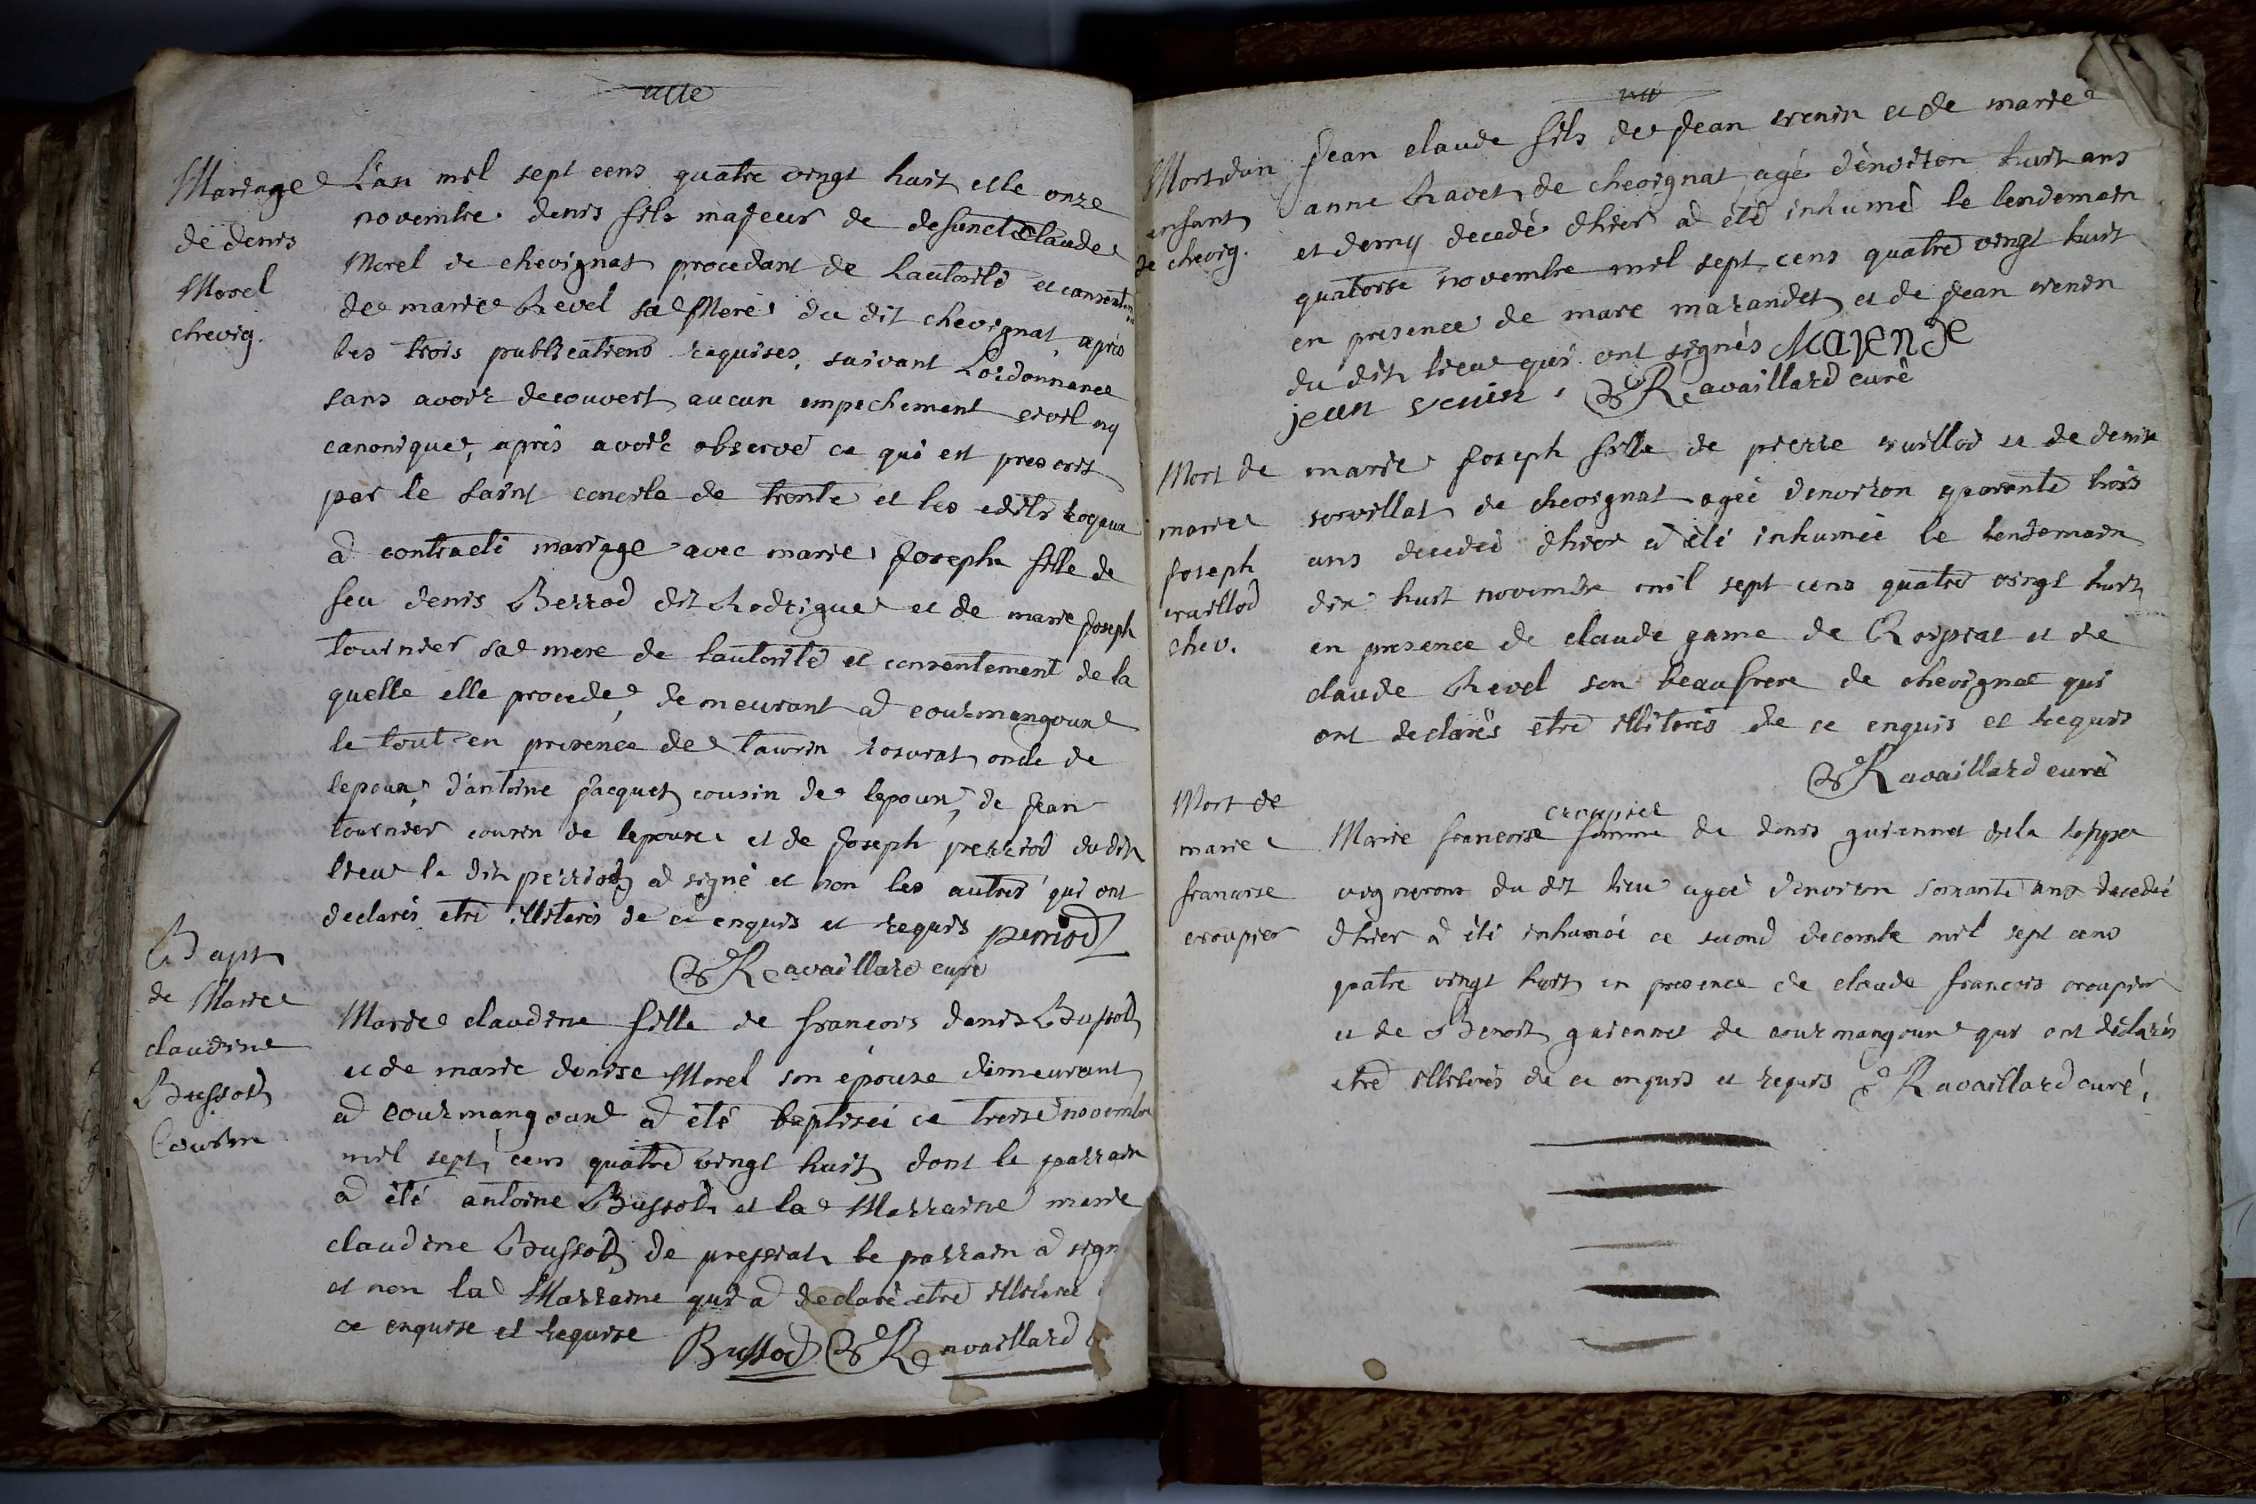 Mariage
de denis
Morel
chevig.
L'an mil sept cens quatre vingt huit et le onze
novembre denis fils majeur de defunct Claude
Morel de chevignat procedant de l'autorité et consentem
de marie Revel sa Mere du dit chevignat, apres
les trois publications requises, suivant Lordonnance
sans avoir decouvert aucun empechement civil ny
canonique, aprés avoir observé ce qui est prescrit
par le saint concile de trente et les edits royaux
a contracté mariage avec marie Joseph fille de
feu denis Berrod dit Rodrigue et de marie Joseph
tournier sa mere de l'autorité et consentement de la
quelle elle procede, demeurant a courmangoux
le tout en presence de taurin oncle de
lepoux, d'antoine Jacquet cousin de lepoux, de Jean
tournier cousin de lepouse et de Joseph perriod du dit
lieu le dit perriod a signé et non les autres qui ont
declarés etre illiterés de ce enquis et requis perriod
Ravaillard curé
Bapt
de Marie
claudine
Bussod
Courm
Marie claudine fille de françois denis Bussod
et de marie denise Morel son épouse demeurant
a courmangoux a été baptiseé ce treise novembre
mil sept cens quatre vingt huit dont le parrain
a été antoine Bussod et la Marraine marie
claudine Bussod de pressiat le parrain a sign
et non la Marraine qui a declaré etre illiteré
ce enquise et requise
Bussod Ravaillard
Mort d'un
enfant
de chevig.
Jean claude fils de Jean venin et de marie
anne Ravet de chevignat agé d'environ huit ans
et demy decedé d'hier a été inhumé le lendemain
quatorse novembre mil sept cens quatre vingt huit
en presence de marc marandet et de Jean venin
du dit lieu qui ont signés MARENDE
jean venin, Ravaillard curé
Mort de
marie
Joseph
vuillod
chev.
marie Joseph fille de pierre vuillod et de denise
de chevignat ageé d'environ quarante trois
ans decedeé d'hier a été inhumeé le lendemain
dix huit novembre mil sept cens quatre vingt huit
en presence de claude game de Roissiat et de
claude Revel son beaufrere de chevignat qui
ont declarés etre illiterés de ce enquis et requis
Ravaillard curé
Mort de
marie
francoise
croupier
croupier
Marie francoise femme de denis guiennet de la
vigneron du dit lieu ageé d'environ soixante ans decedeé
d'hier a été inhumeé ce second decembre mil sept cens
quatre vingt huit en presence de claude francois croupier
et de Benoit guiennet de courmangoux qui ont déclarés
etre illiterés de ce enquis et requis Ravaillard curé,